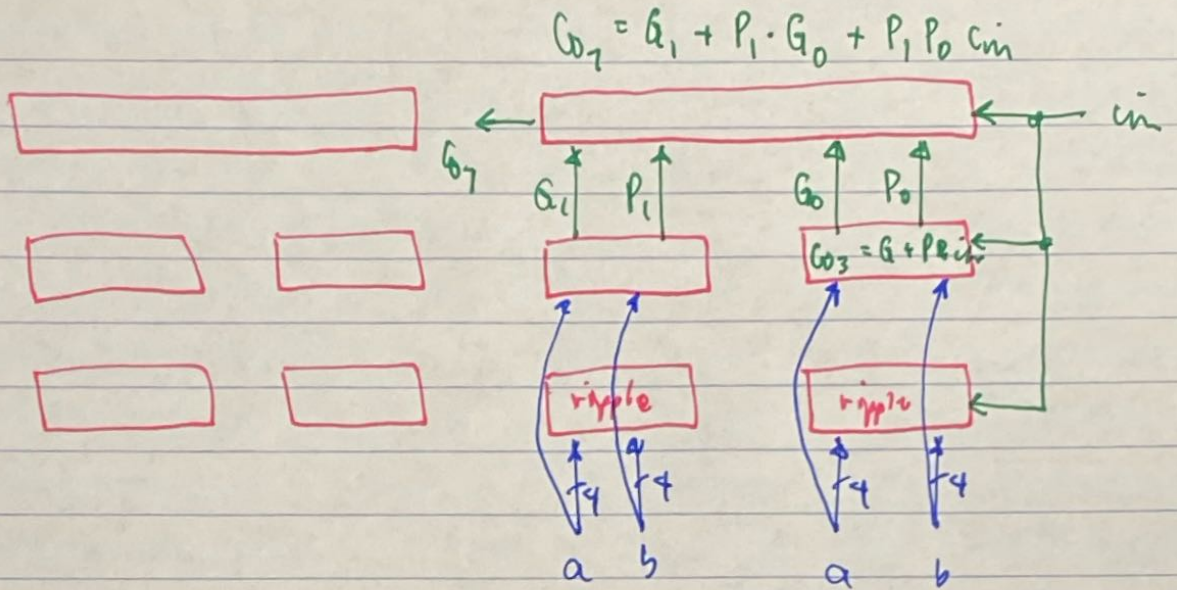 Co₇ = G₁ + P₁ · G₀ + P₁ P₀ cin
cin
Co₇
G₁ P₁ G₀ P₀
Co₃ = G + P cin
ripple ripple
4 4 4 4
a b a b